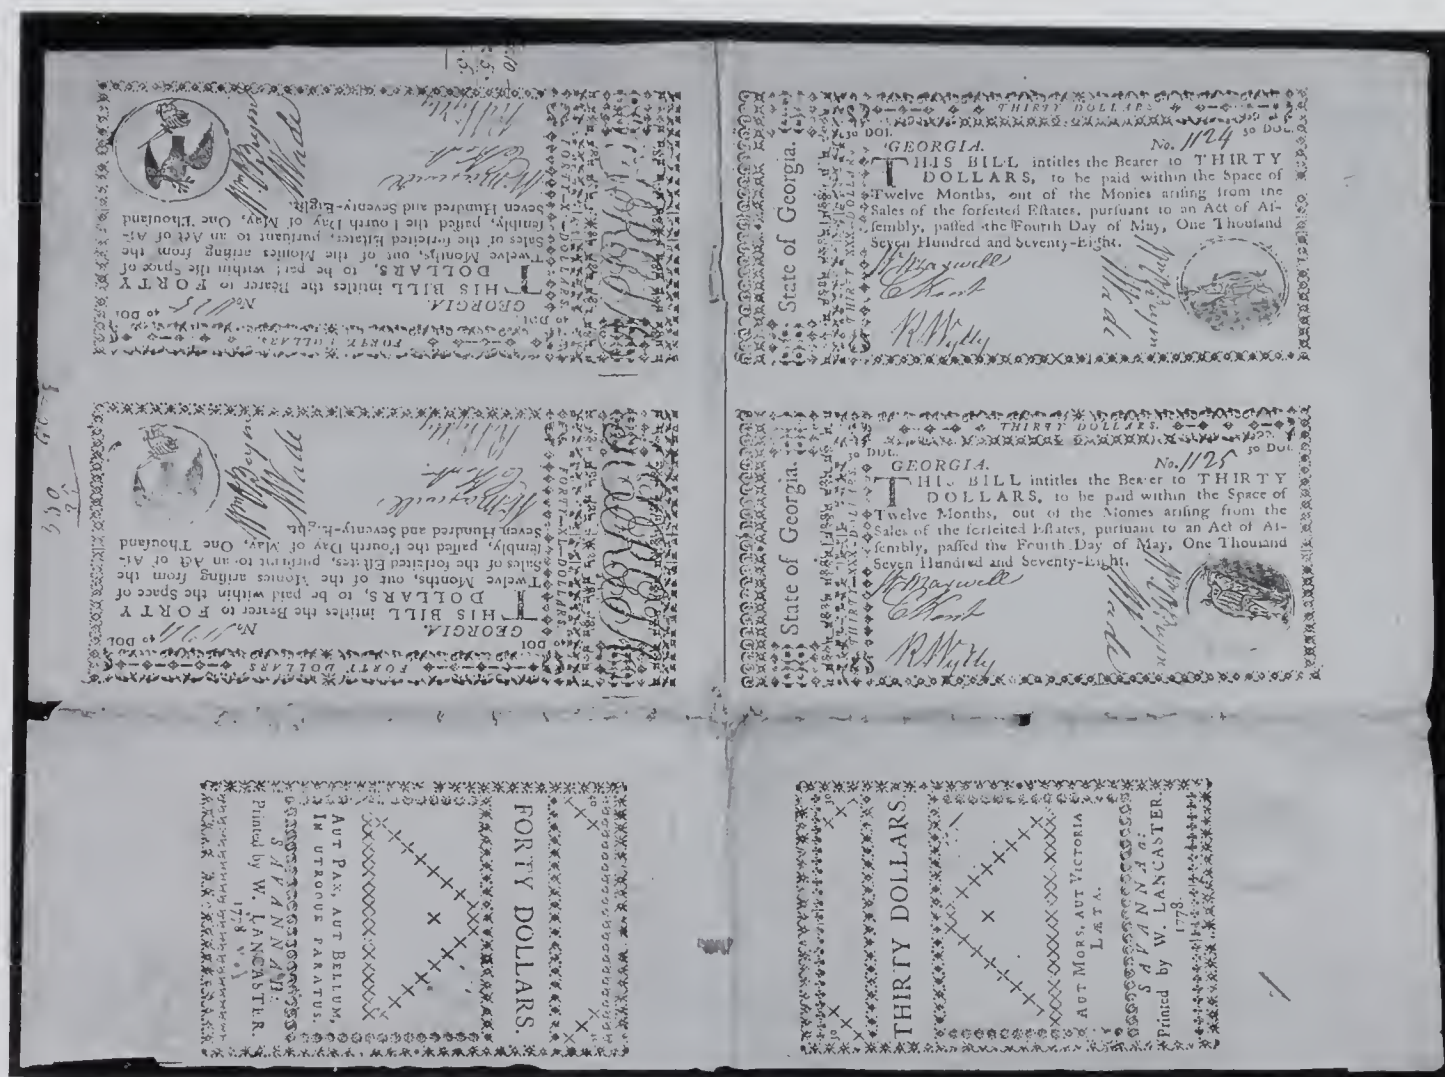 THIRTY DOLLARS
30 DOL. 30 DOL.
GEORGIA. No. 1124
THIS BILL intitles the Bearer to THIRTY
DOLLARS, to be paid within the Space of
Twelve Months, out of the Monies arifing from the
Sales of the forfeited Eftates, purfuant to an Act of Af-
fembly, paffed the Fourth Day of May, One Thoufand
Seven Hundred and Seventy-Eight.
Wm Maxwell
C Kent
R Wylly
Wade
State of Georgia.
THIRTY DOLLARS.
30 DOL. 30 DOL.
GEORGIA. No. 1125
THIS BILL intitles the Bearer to THIRTY
DOLLARS, to be paid within the Space of
Twelve Months, out of the Monies arifing from the
Sales of the forfeited Eftates, purfuant to an Act of Af-
fembly, paffed the Fourth Day of May, One Thoufand
Seven Hundred and Seventy-Eight.
Wm Maxwell
C Kent
R Wylly
Wade
State of Georgia.
FORTY DOLLARS.
40 DOL.
GEORGIA. No.
THIS BILL intitles the Bearer to FORTY
DOLLARS, to be paid within the Space of
Twelve Months, out of the Monies arifing from the
Sales of the forfeited Eftates, purfuant to an Act of Af-
fembly, paffed the Fourth Day of May, One Thoufand
Seven Hundred and Seventy-Eight.
Wm Maxwell
C Kent
R Wylly
Wade
FORTY DOLLARS
40 DOL.
GEORGIA. No.
THIS BILL intitles the Bearer to FORTY
DOLLARS, to be paid within the Space of
Twelve Months, out of the Monies arifing from the
Sales of the forfeited Eftates, purfuant to an Act of Af-
fembly, paffed the Fourth Day of May, One Thoufand
Seven Hundred and Seventy-Eight.
Wm Maxwell
C Kent
R Wylly
Wade
FORTY DOLLARS.
AUT PAX, AUT BELLUM,
IN UTROQUE PARATUS.
SAVANNAH:
Printed by W. LANCASTER.
1778
THIRTY DOLLARS.
AUT MORS, AUT VICTORIA
LÆTA.
SAVANNAH:
Printed by W. LANCASTER.
1778.